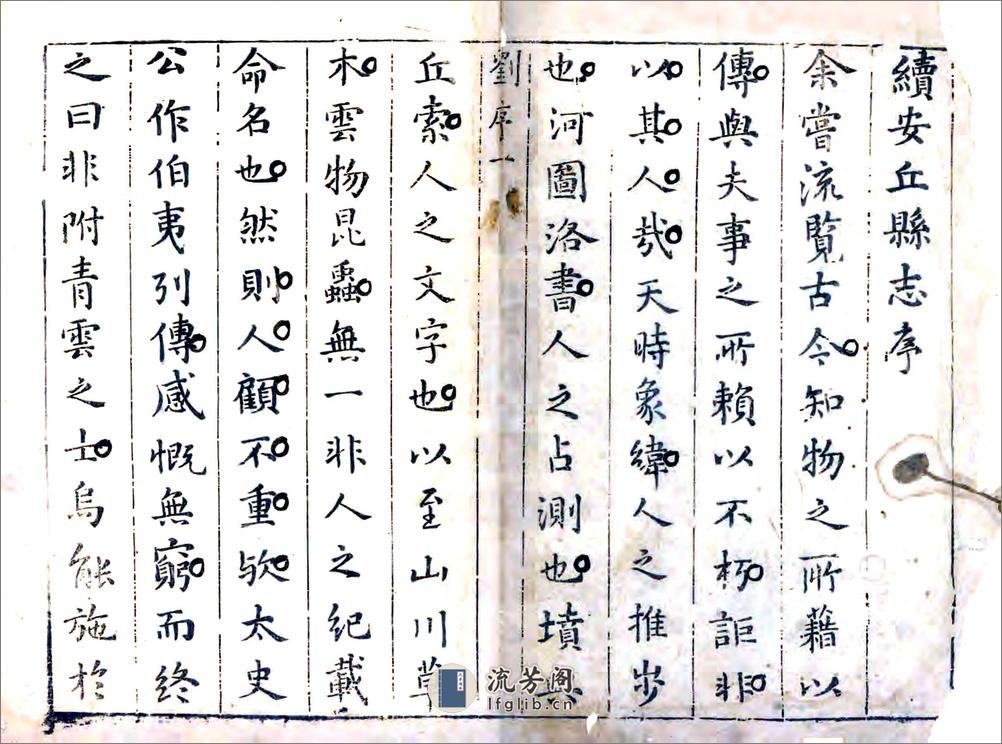 續安丘縣志序
余嘗流覽古今知物之所藉以
傳與夫事之所賴以不朽詎非
以其人哉天時象緯人之推步
也河圖洛書人之占測也墳
劉序一
丘索人之文字也以至山川草
木雲物昆蟲無一非人之紀載
命名也然則人顧不重歟太史
公作伯夷列傳感慨無窮而終
之曰非附青雲之士烏能施於
流芳阁
lfglib.cn